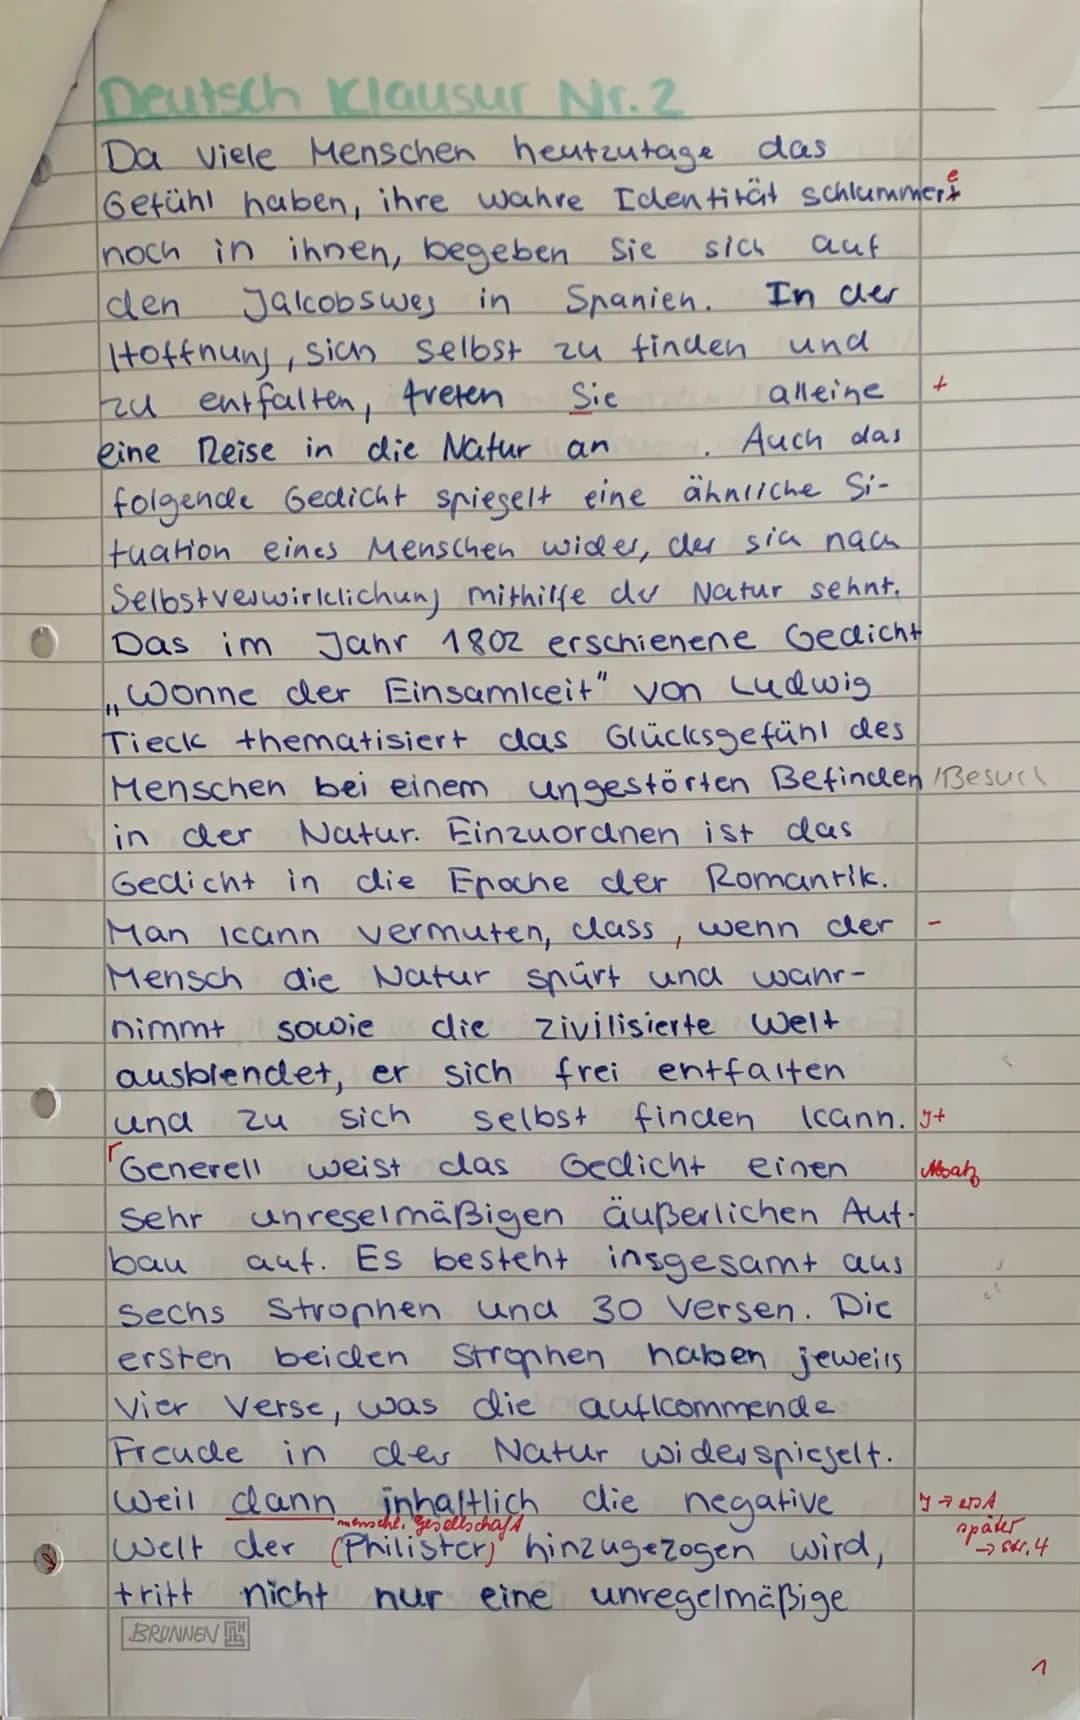 Deutsch Klausur Nr. 2
Da viele Menschen heutzutage das
Gefühl haben, ihre wahre Identität schlummert e
noch in ihnen, begeben Sie sich auf
den Jakobsweg in Spanien. In der
Hoffnung, sich selbst zu finden und
zu entfalten, treten Sie alleine +
eine Reise in die Natur an . Auch das
folgende Gedicht spiegelt eine ähnliche Si-
tuation eines Menschen wider, der sich nach
Selbstverwirklichung mithilfe der Natur sehnt.
Das im Jahr 1802 erschienene Gedicht
„Wonne der Einsamkeit" von Ludwig
Tieck thematisiert das Glücksgefühl des
Menschen bei einem ungestörten Befinden /Besuch
in der Natur. Einzuordnen ist das
Gedicht in die Epoche der Romantik.
Man kann vermuten, dass, wenn der -
Mensch die Natur spürt und wahr-
nimmt sowie die zivilisierte Welt
ausblendet, er sich frei entfalten
und zu sich selbst finden kann. J+
Generell weist das Gedicht einen Absatz
sehr unregelmäßigen äußerlichen Auf-
bau auf. Es besteht insgesamt aus
sechs Strophen und 30 Versen. Die
ersten beiden Strophen haben jeweils
vier Verse, was die aufkommende
Freude in der Natur widerspiegelt.
Weil dann inhaltlich die negative J → erst
menschl. Gesellschaft später
Welt der (Philister) hinzugezogen wird, → Str. 4
tritt nicht nur eine unregelmäßige
BRUNNEN
1